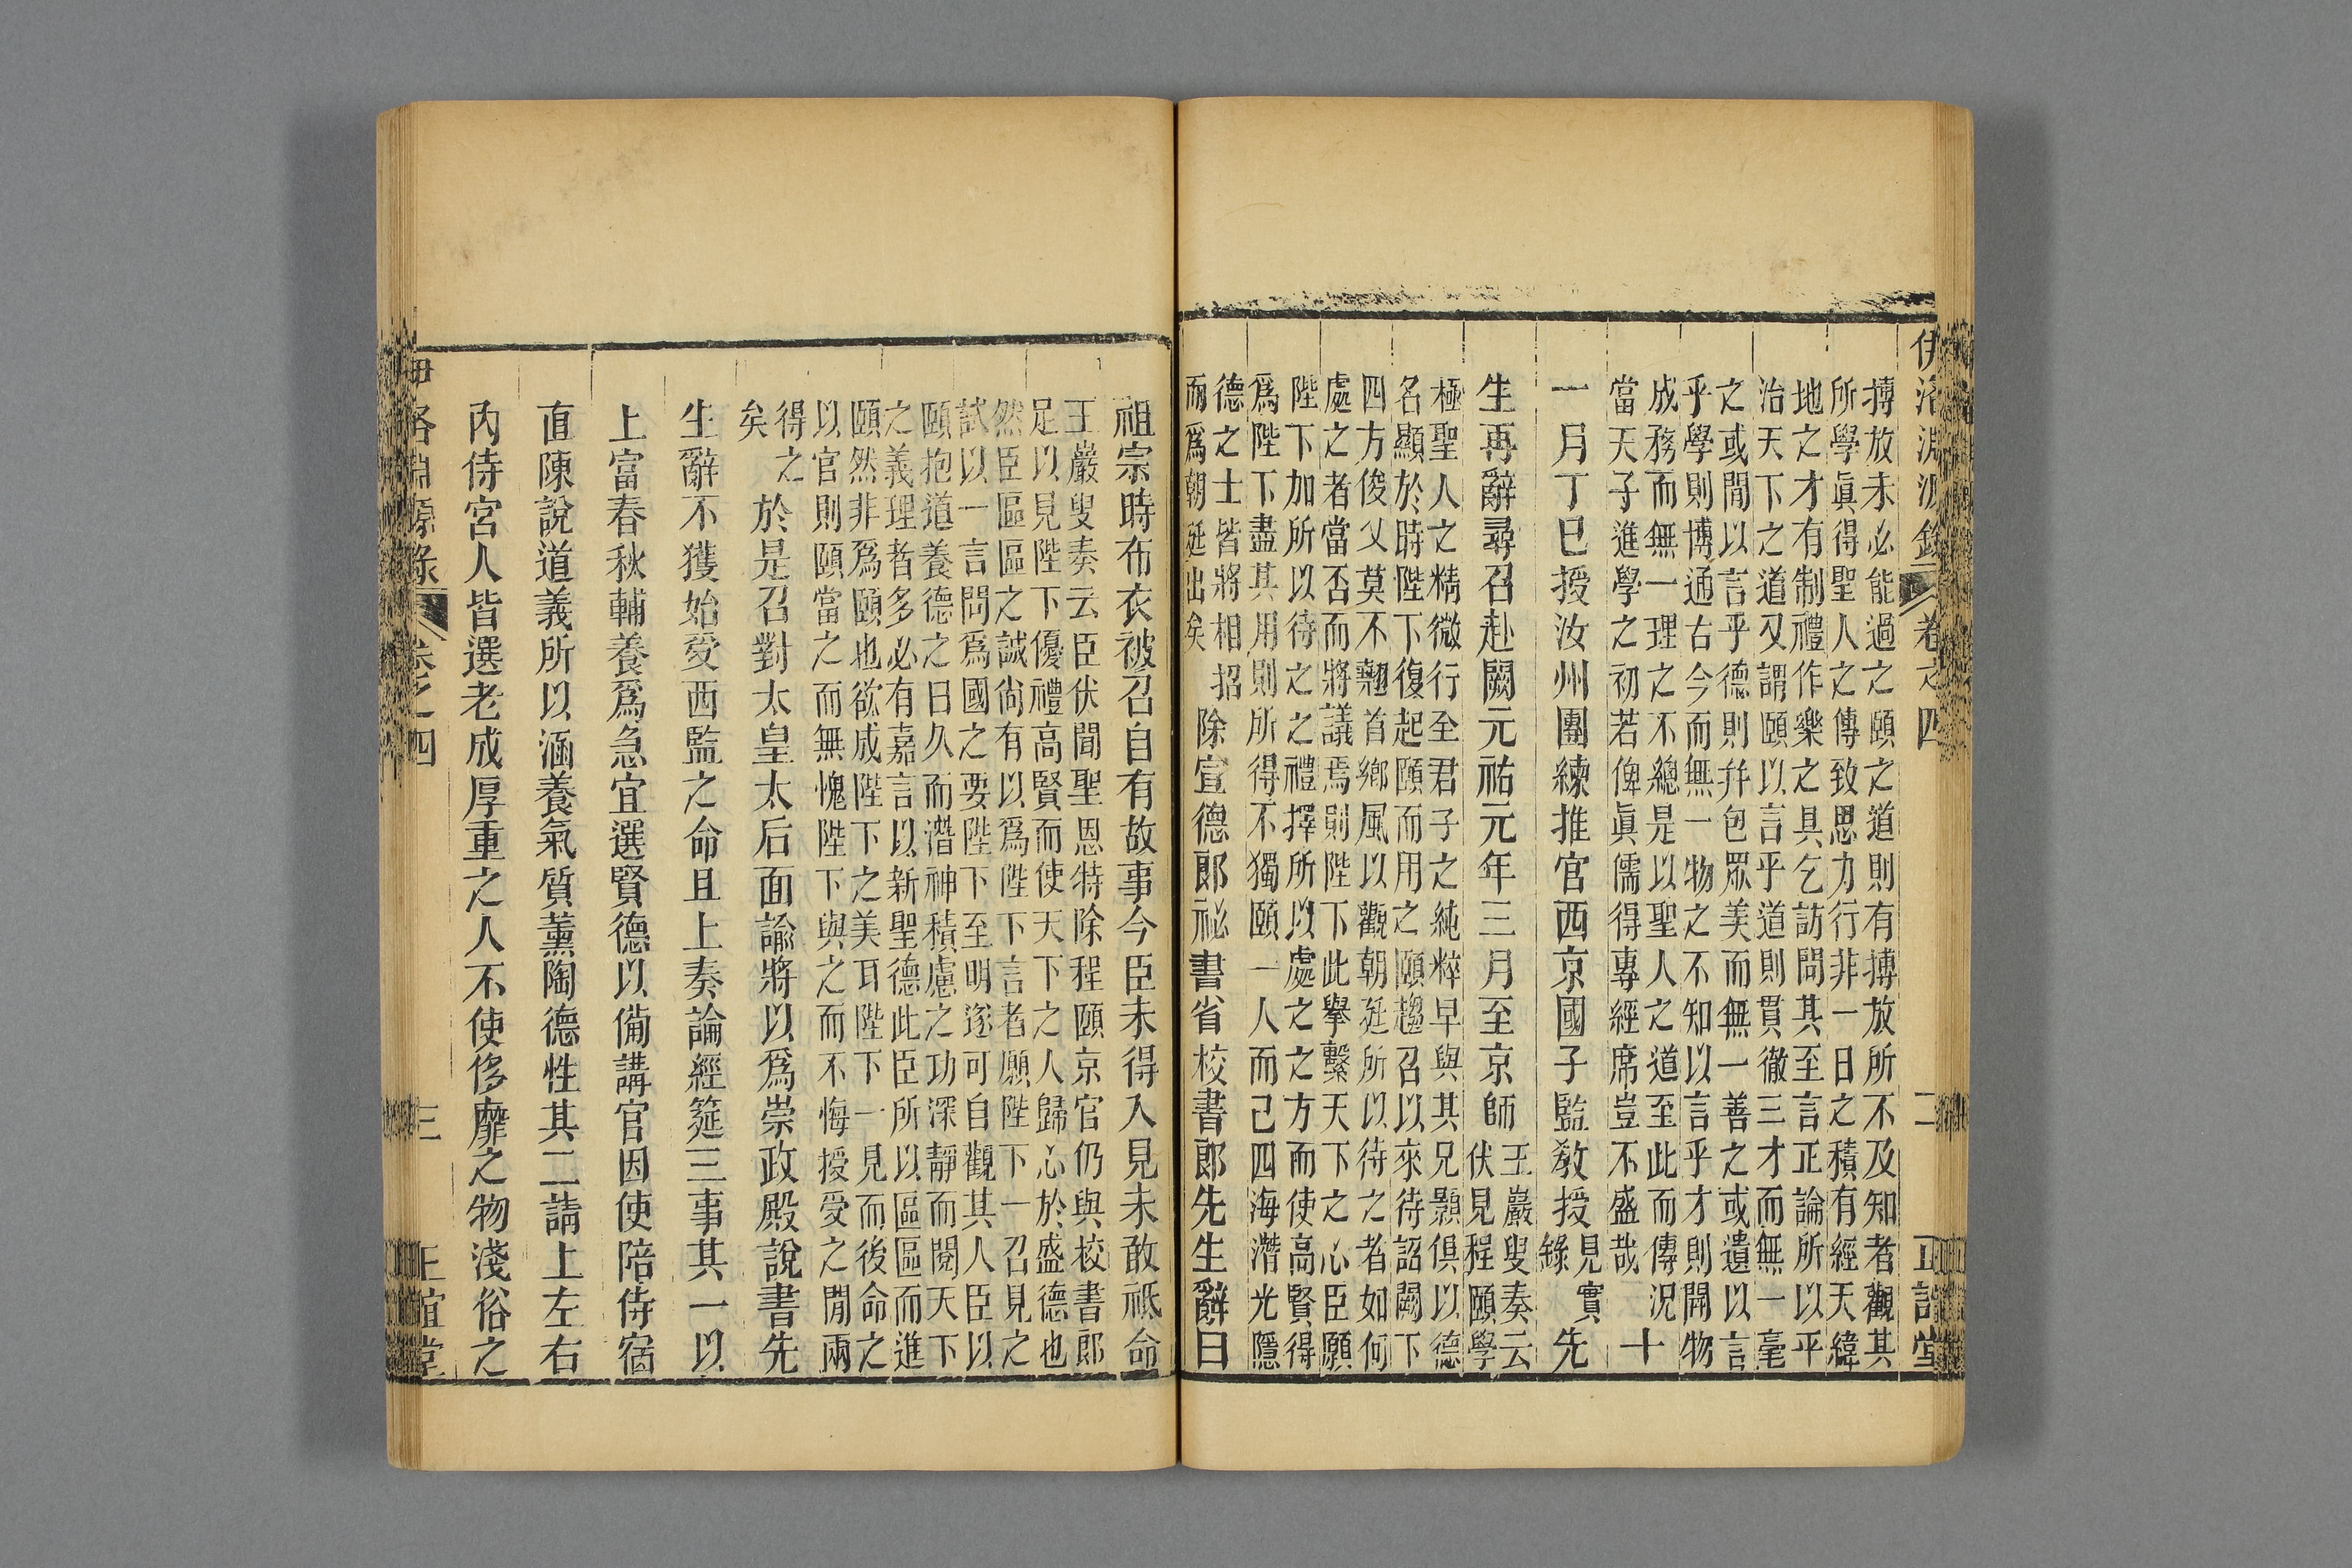 伊洛淵源錄 卷之四 二 正誼堂
摶放未必能過之頤之道則有摶放所不及知者觀其
所學眞得聖人之傳致思力行非一日之積有經天緯
地之才有制禮作樂之具乞訪問其至言正論所以平
治天下之道又謂頤以言乎道則貫徹三才而無一毫
之或閒以言乎德則幷包眾美而無一善之或遺以言
乎學則博通古今而無一物之不知以言乎才則開物
成務而無一理之不總是以聖人之道至此而傳況
當天子進學之初若俾眞儒得專經席豈不盛哉
十
一月丁巳授汝州團練推官西京國子監敎授
見實
錄
先
生再辭尋召赴闕元祐元年三月至京師
王巖叟奏云
伏見程頤學
極聖人之精微行至君子之純粹早與其兄顥俱以德
名顯於時陛下復起頤而用之頤趨召以來待詔闕下
四方俊乂莫不翹首鄉風以觀朝廷所以待之者如何
處之者當否而將議焉則陛下此舉繫天下之心臣願
陛下加所以待之之禮擇所以處之之方而使高賢得
爲陛下盡其用則所得不獨頤一人而已四海潛光隱
德之士皆將相招
而爲朝廷出矣
除宣德郎祕書省校書郎先生辭曰
祖宗時布衣被召自有故事今臣未得入見未敢祗命
王巖叟奏云臣伏聞聖恩特除程頤京官仍與校書郎
足以見陛下優禮高賢而使天下之人歸心於盛德也
然臣區區之誠尙有以爲陛下言者願陛下一召見之
試以一言問爲國之要陛下至明遂可自觀其人臣以
頤抱道養德之日久而潛神積慮之功深靜而閱天下
之義理者多必有嘉言以新聖德此臣所以區區而進
頤然非爲頤也欲成陛下之美耳陛下一見而後命之
以官則頤當之而無愧陛下與之而不悔授受之閒兩
得之
矣
於是召對太皇太后面諭將以爲崇政殿說書先
生辭不獲始受西監之命且上奏論經筵三事其一以
上富春秋輔養爲急宜選賢德以備講官因使陪侍宿
直陳說道義所以涵養氣質薰陶德性其二請上左右
內侍宮人皆選老成厚重之人不使侈靡之物淺俗之
伊洛淵源錄 卷之四 三 正誼堂